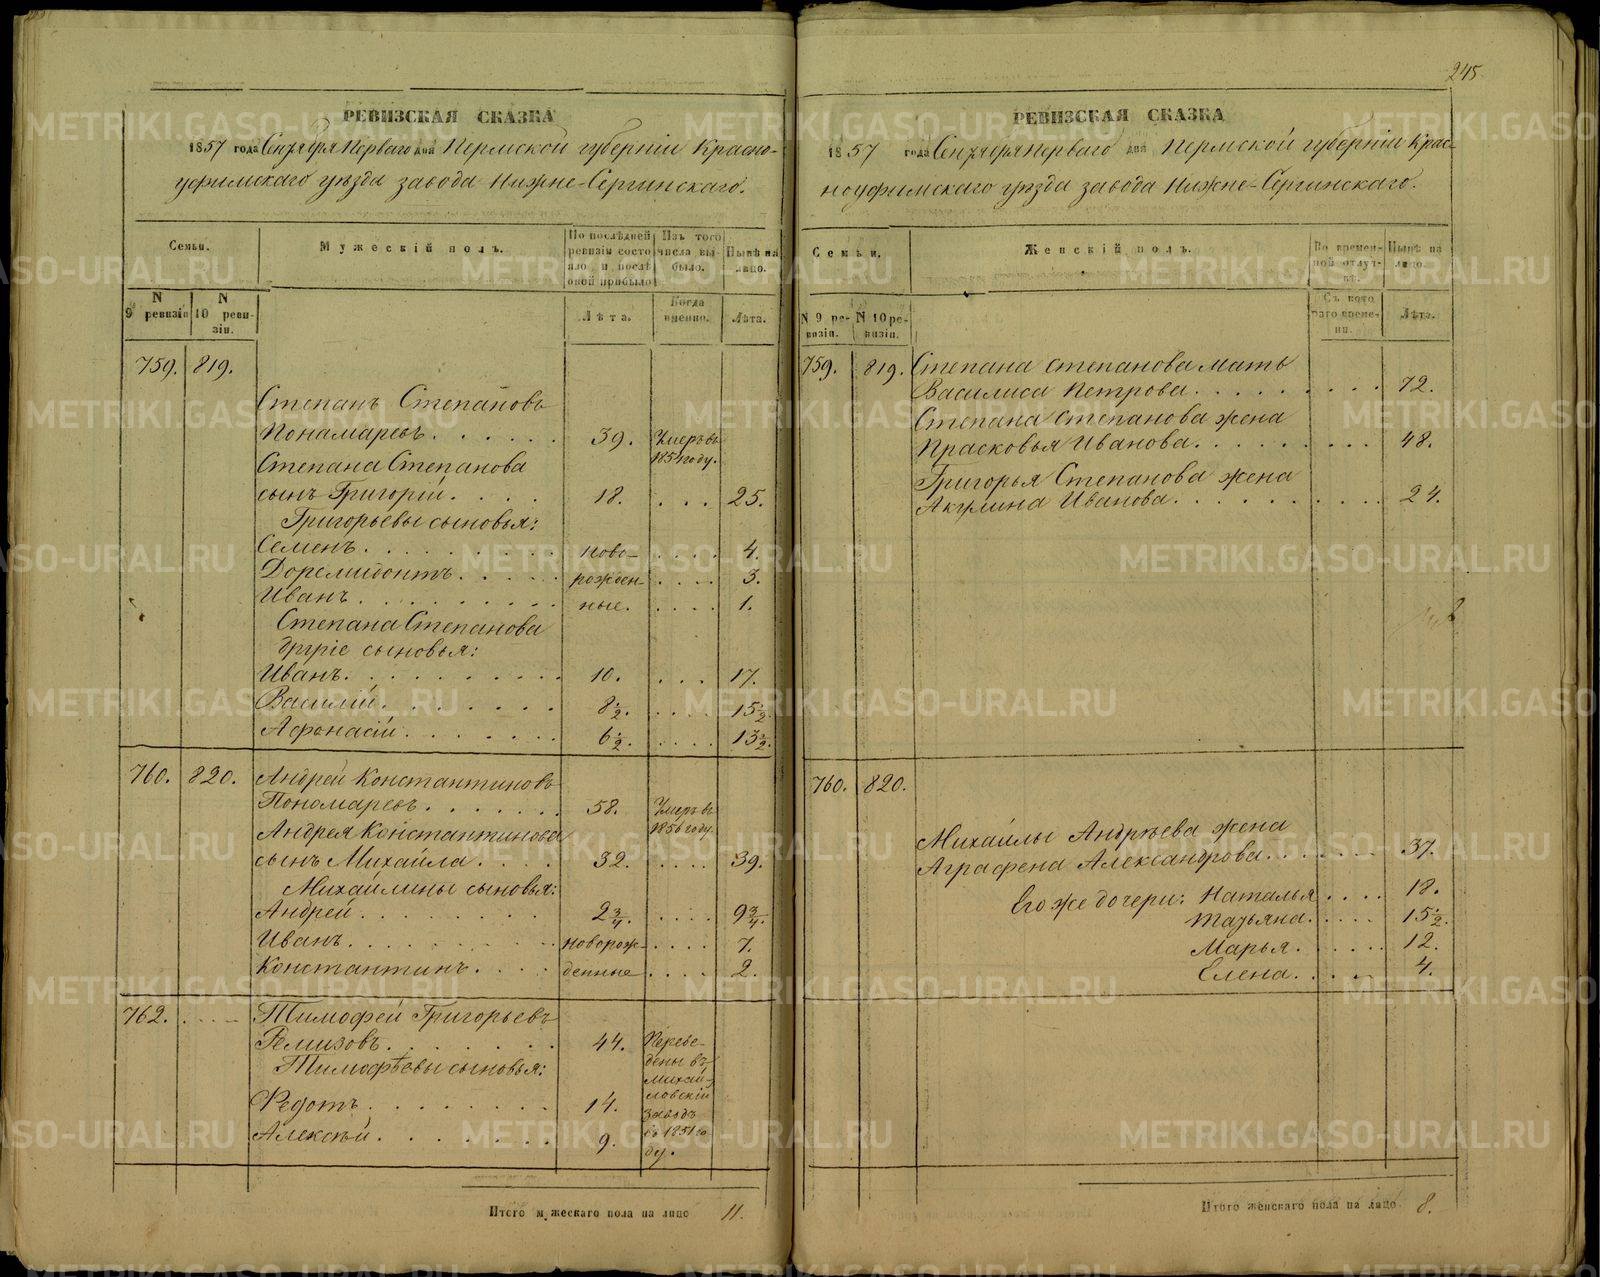 245
РЕВИЗСКАЯ СКАЗКА
1857 года Сентября Перваго дня Пермской губерніи Красно-
уфимскаго уѣзда завода Нижне-Сергинскаго.
Семьи.
Мужескій полъ.
По послѣдней ревизіи состояло и послѣ оной прибыло
Изъ того числа выбыло.
Нынѣ на лицо.
N 9 ревизіи
N 10 ревизіи.
Лѣта.
Когда именно.
Лѣта.
759. 819.
Степанъ Степановъ
Пономаревъ 39. Умеръ въ 1854 году.
Степана Степанова
сынъ Григорій 18. 25.
Григорьевы сыновья:
Семенъ ново- 4.
Доремидонтъ рожден- 3.
Иванъ ные. 1.
Степана Степанова
другіе сыновья:
Иванъ 10. 17.
Василій 8 1/2. 15 1/2.
Афонасій 6 1/2. 13 1/2.
760. 820. Андрей Константиновъ
Пономаревъ 58. Умеръ въ 1856 году.
Андрея Константинова
сынъ Михайла 32. 39.
Михайлины сыновья:
Андрей 2 3/4. 9 3/4.
Иванъ новорож- 7.
Константинъ денные 2.
762. Тимофей Григорьевъ
Ремизовъ 44. Переведены въ Михайловскій заводъ въ 1851 году.
Тимофѣевы сыновья:
Федотъ 14.
Алексѣй 9.
Итого мужескаго пола на лицо 11.
РЕВИЗСКАЯ СКАЗКА
1857 года Сентября Перваго дня Пермской губерніи Крас-
ноуфимскаго уѣзда завода Нижне-Сергинскаго.
Семьи.
Женскій полъ.
Во временной отлучкѣ.
Нынѣ на лицо.
N 9 ревизіи.
N 10 ревизіи.
Съ котораго времени.
Лѣта.
759. 819. Степана Степанова мать
Василиса Петрова 72.
Степана Степанова жена
Прасковья Иванова 48.
Григорья Степанова жена
Акулина Иванова 24.
760. 820.
Михайлы Андрѣева жена
Аграфена Александрова 37.
Его же дочери: Наталья 18.
Татьяна 15 1/2.
Марья 12.
Елена 4.
Итого женскаго пола на лицо 8.
METRIKI.GASO-URAL.RU